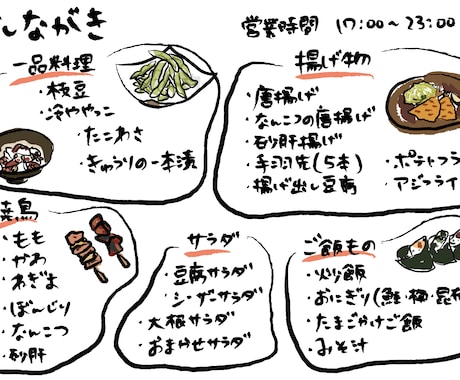 しながき
営業時間 17:00〜23:00
一品料理
・枝豆
・冷ややっこ
・たこわさ
・きゅうりの一本漬
揚げ物
・唐揚げ
・なんこつの唐揚げ
・砂肝揚げ
・手羽先(5本)
・揚げ出し豆腐
・ポテトフラ
・アジフライ
焼鳥
・もも
・かわ
・ねぎま
・ぼんじり
・なんこつ
・砂肝
サラダ
・豆腐サラダ
・シーザーサラダ
・大根サラダ
・おまかせサラダ
ご飯もの
・炒飯
・おにぎり(鮭・梅・昆布
・たまごかけご飯
・みそ汁